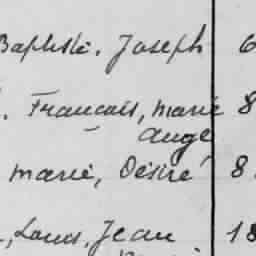 Baptiste. Joseph 6
. Francois, marie 8
ange
marie, Désiré 8
, Louis, Jean 18